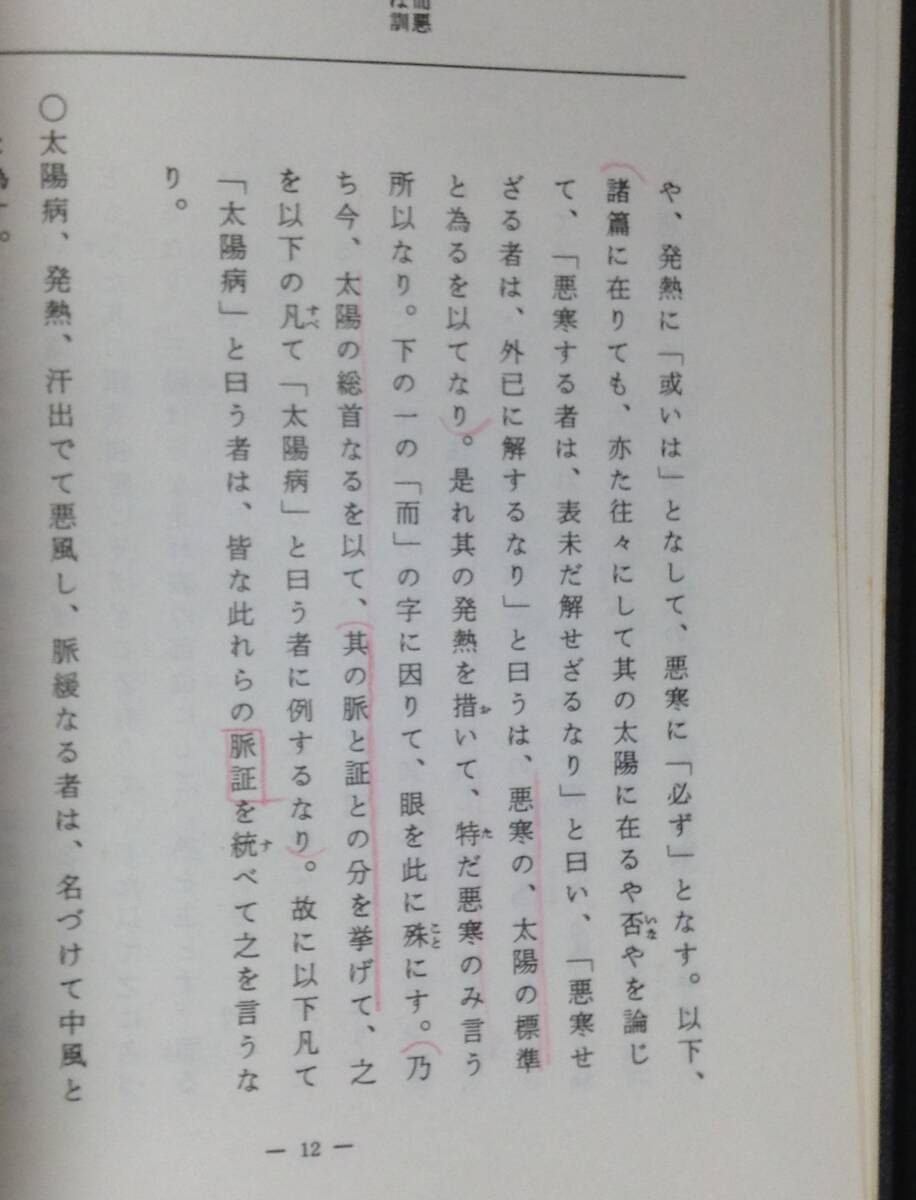 而悪
は訓
や、発熱に「或いは」となして、悪寒に「必ず」となす。以下、
諸篇に在りても、亦た往々にして其の太陽に在るや否やを論じ
て、「悪寒する者は、表未だ解せざるなり」と曰い、「悪寒せ
ざる者は、外已に解するなり」と曰うは、悪寒の、太陽の標準
と為るを以てなり。是れ其の発熱を措いて、特だ悪寒のみ言う
所以なり。下の一の「而」の字に因りて、眼を此に殊にす。乃
ち今、太陽の総首なるを以て、其の脈と証との分を挙げて、之
を以下の凡て「太陽病」と曰う者に例するなり。故に以下凡て
「太陽病」と曰う者は、皆な此れらの脈証を統べて之を言うな
り。
〇太陽病、発熱、汗出でて悪風し、脈緩なる者は、名づけて中風と
為す。
— 12 —